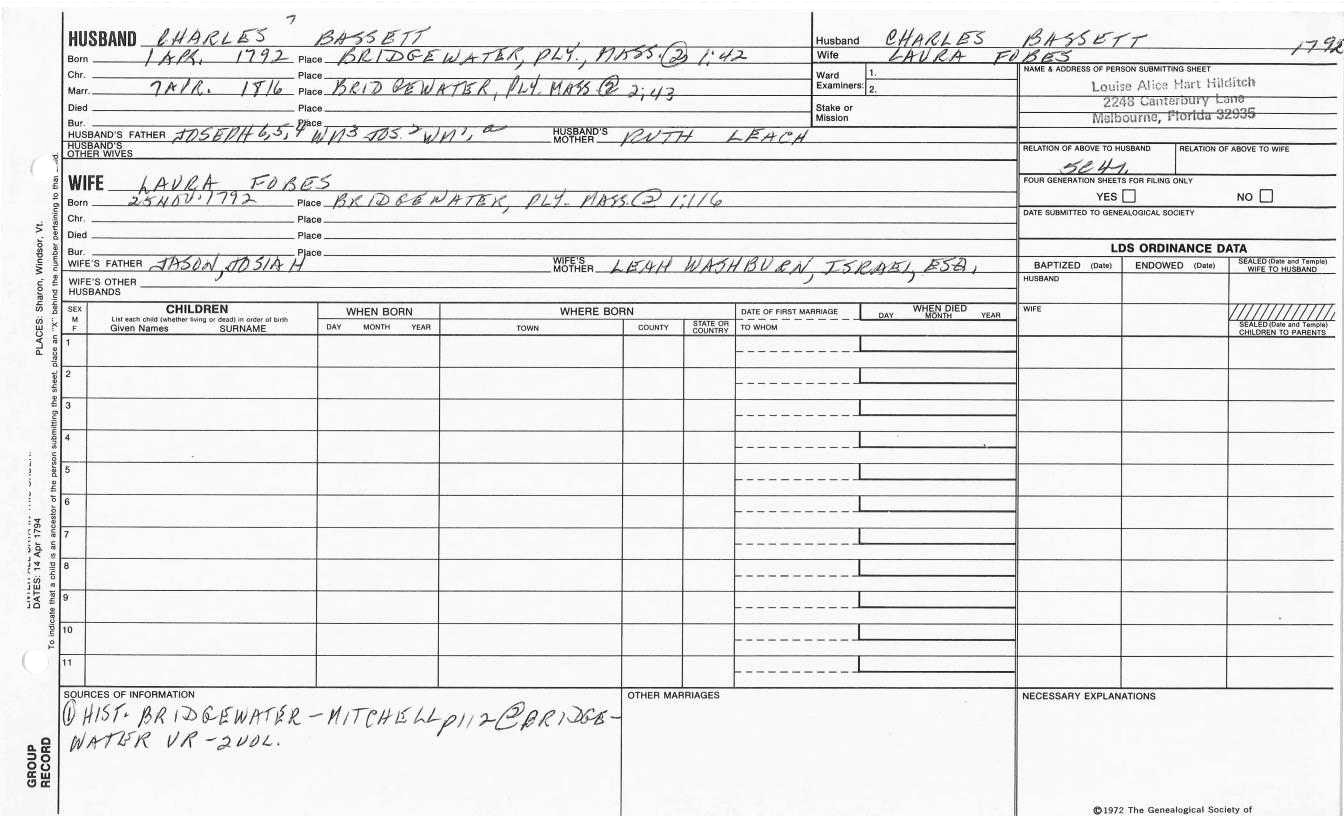 7
HUSBAND CHARLES BASSETT
Born 1 APR. 1792 Place BRIDGEWATER, PLY., MASS. ② 1:42
Chr. Place
Marr. 7 APR. 1816 Place BRIDGEWATER, PLY. MASS ② 2:43
Died Place
Bur. Place
HUSBAND'S FATHER JOSEPH 6, 5, 4 WM3 JOS.2 WM1, a
HUSBAND'S MOTHER RUTH LEACH
HUSBAND'S OTHER WIVES
WIFE LAURA FOBES
Born 25 NOV. 1792 Place BRIDGEWATER, PLY. MASS. ② 1:116
Chr. Place
Died Place
Bur. Place
WIFE'S FATHER JASON, JOSIAH
WIFE'S MOTHER LEAH WASHBURN, ISRAEL, ESQ.
WIFE'S OTHER HUSBANDS
Husband CHARLES BASSETT 1792
Wife LAURA FOBES
Ward Examiners: 1.
2.
Stake or Mission
NAME & ADDRESS OF PERSON SUBMITTING SHEET
Louise Alice Hart Hilditch
2248 Canterbury Lane
Melbourne, Florida 32935
RELATION OF ABOVE TO HUSBAND RELATION OF ABOVE TO WIFE
5C4r.
FOUR GENERATION SHEETS FOR FILING ONLY
YES NO
DATE SUBMITTED TO GENEALOGICAL SOCIETY
LDS ORDINANCE DATA
BAPTIZED (Date) ENDOWED (Date) SEALED (Date and Temple) WIFE TO HUSBAND
HUSBAND
WIFE
SEALED (Date and Temple) CHILDREN TO PARENTS
SEX M F
CHILDREN
List each child (whether living or dead) in order of birth
Given Names SURNAME
WHEN BORN
DAY MONTH YEAR
WHERE BORN
TOWN COUNTY STATE OR COUNTRY
DATE OF FIRST MARRIAGE
TO WHOM
WHEN DIED
DAY MONTH YEAR
1
2
3
4
5
6
7
8
9
10
11
SOURCES OF INFORMATION
① HIST. BRIDGEWATER - MITCHELL p112 ② BRIDGE-
WATER VR - 2 VOL.
OTHER MARRIAGES
NECESSARY EXPLANATIONS
©1972 The Genealogical Society of
PLACES: Sharon, Windsor, Vt.
DATES: 14 Apr 1794
To indicate that a child is an ancestor of the person submitting the sheet, place an "X" behind the number pertaining to that
GROUP
RECORD